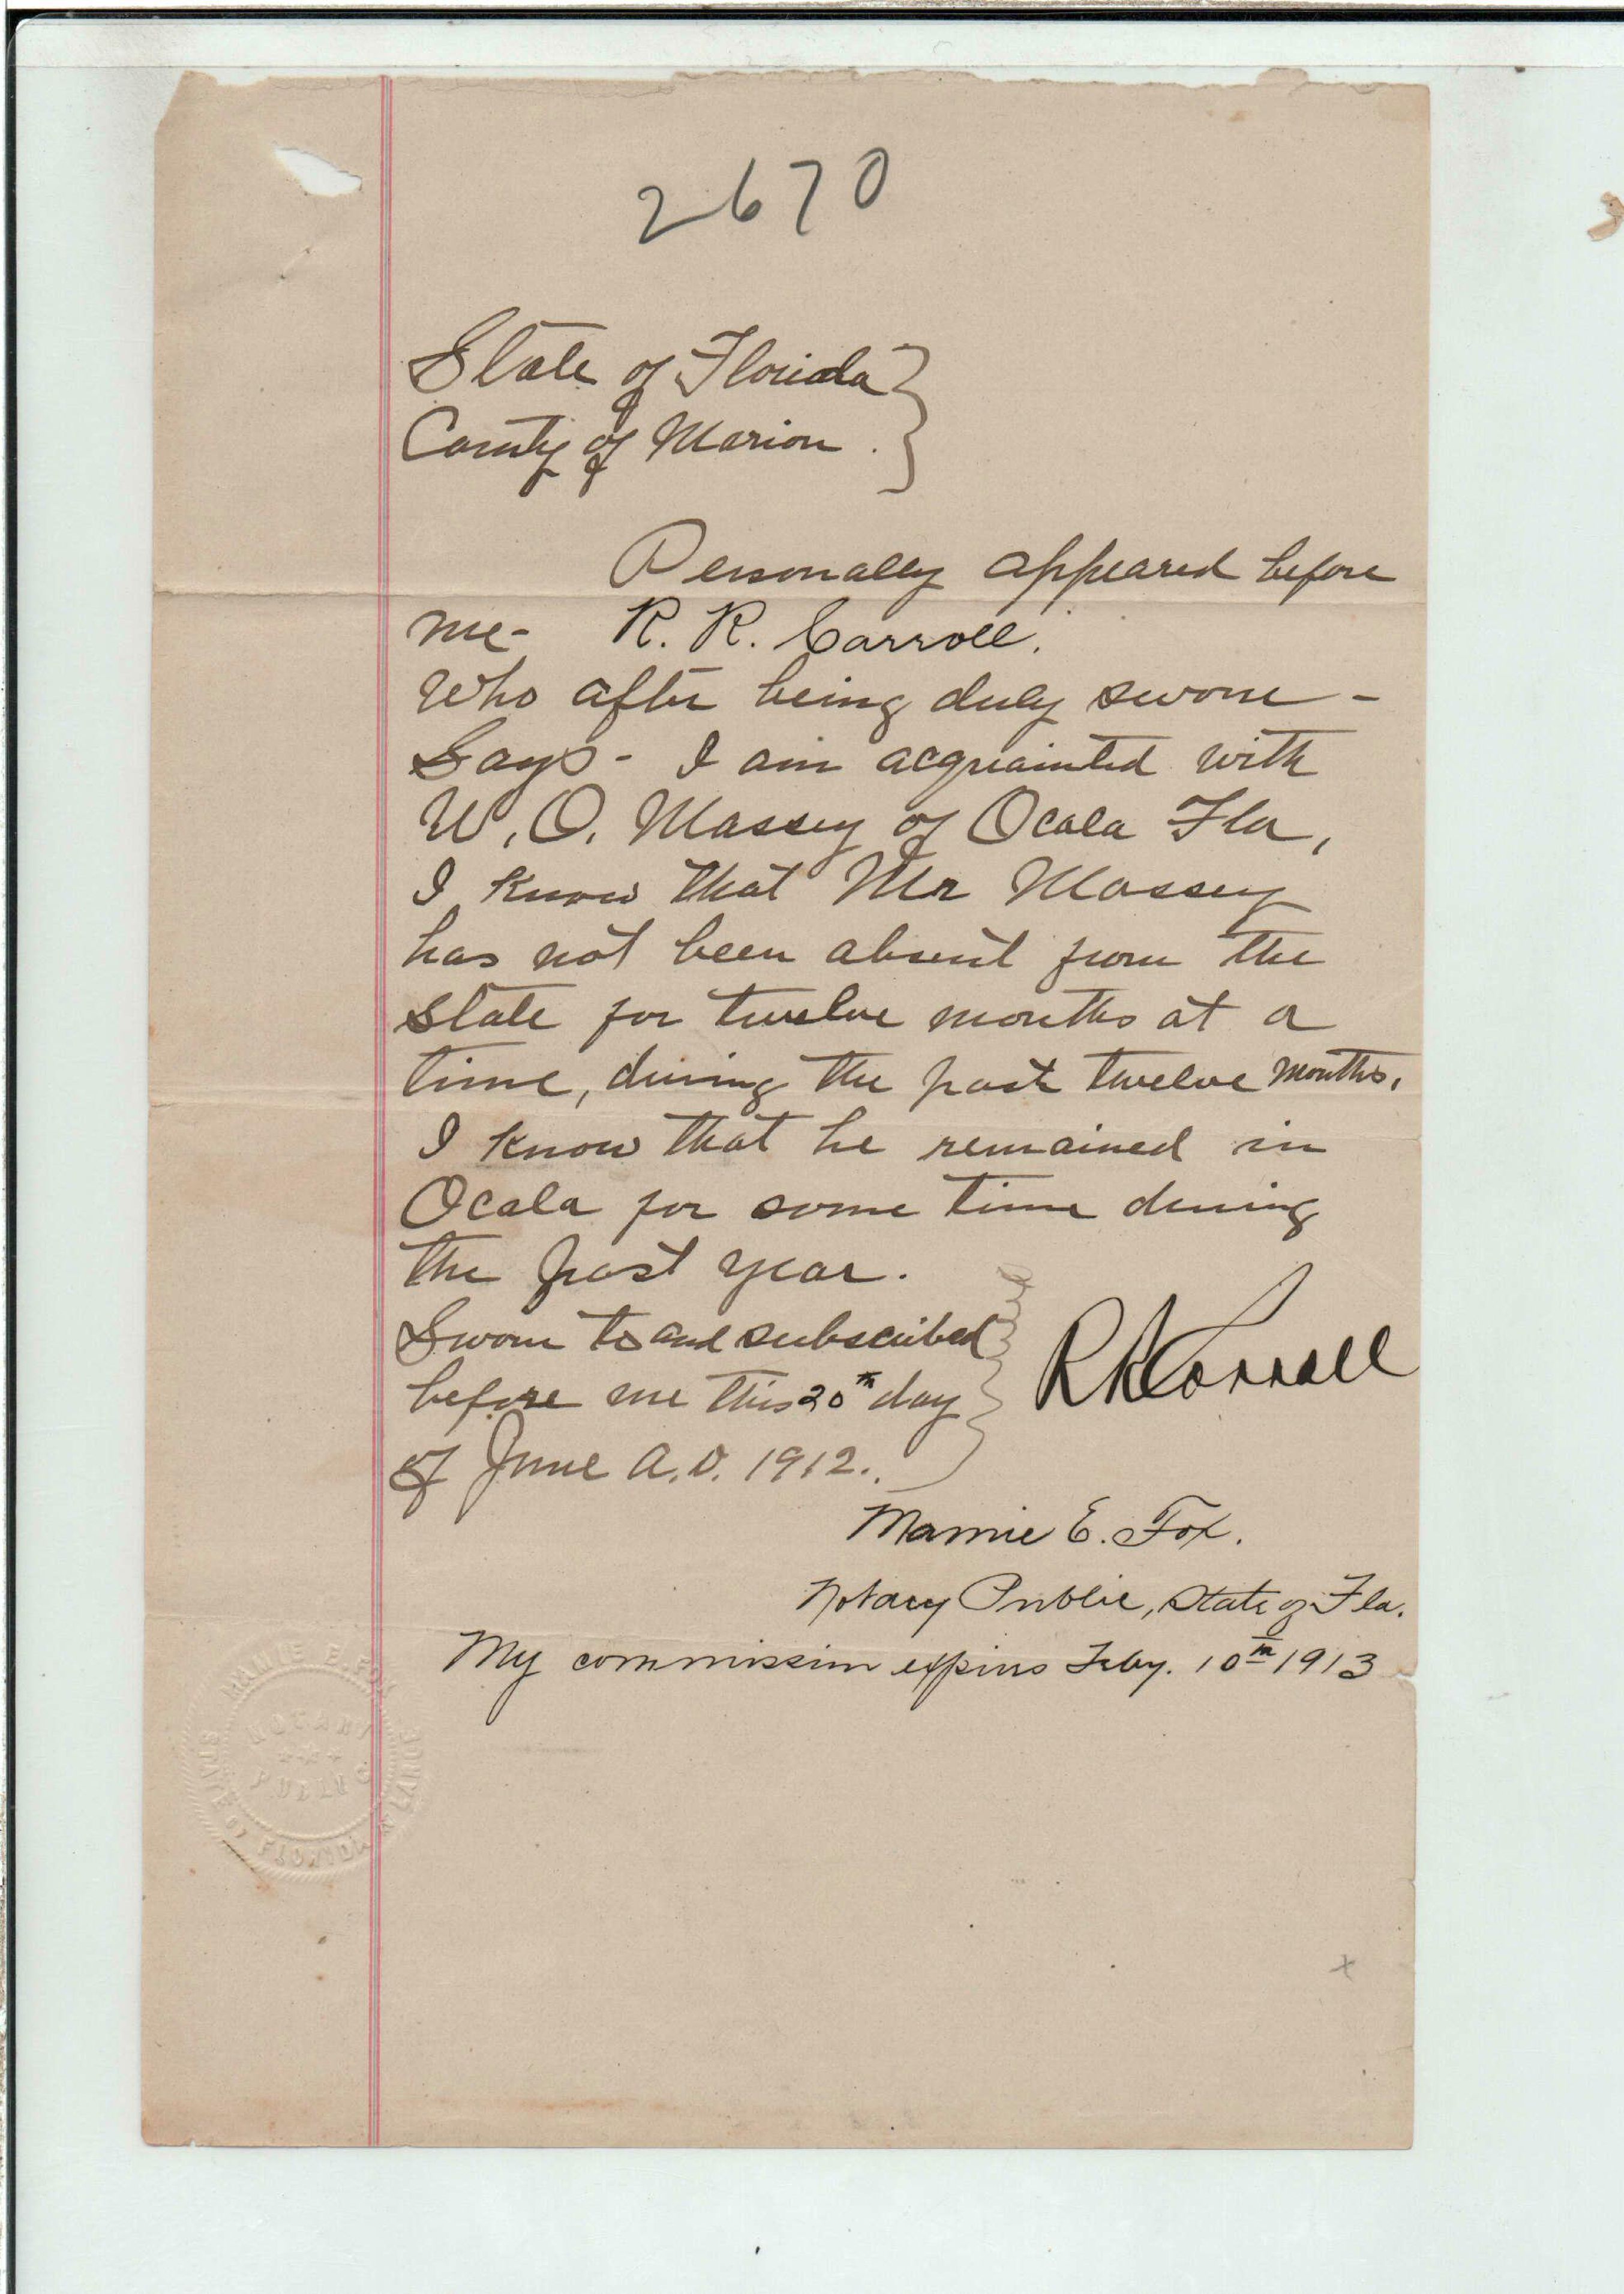 2670
State of Florida
County of Marion.
Personally appeared before
me- R. R. Carroll.
Who after being duly sworn -
Says- I am acquainted with
W. O. Massey of Ocala Fla,
I know that Mr Massey
has not been absent from the
state for twelve months at a
time, during the past twelve months.
I know that he remained in
Ocala for some time during
the past year.
Sworn to and subscribed
before me this 20th day
of June A.D. 1912.
R R Carroll
Mamie E. Fox.
Notary Public, State of Fla.
My commission expires Feby. 10th 1913
MAMIE E. FOX
NOTARY
PUBLIC
STATE OF FLORIDA AT LARGE